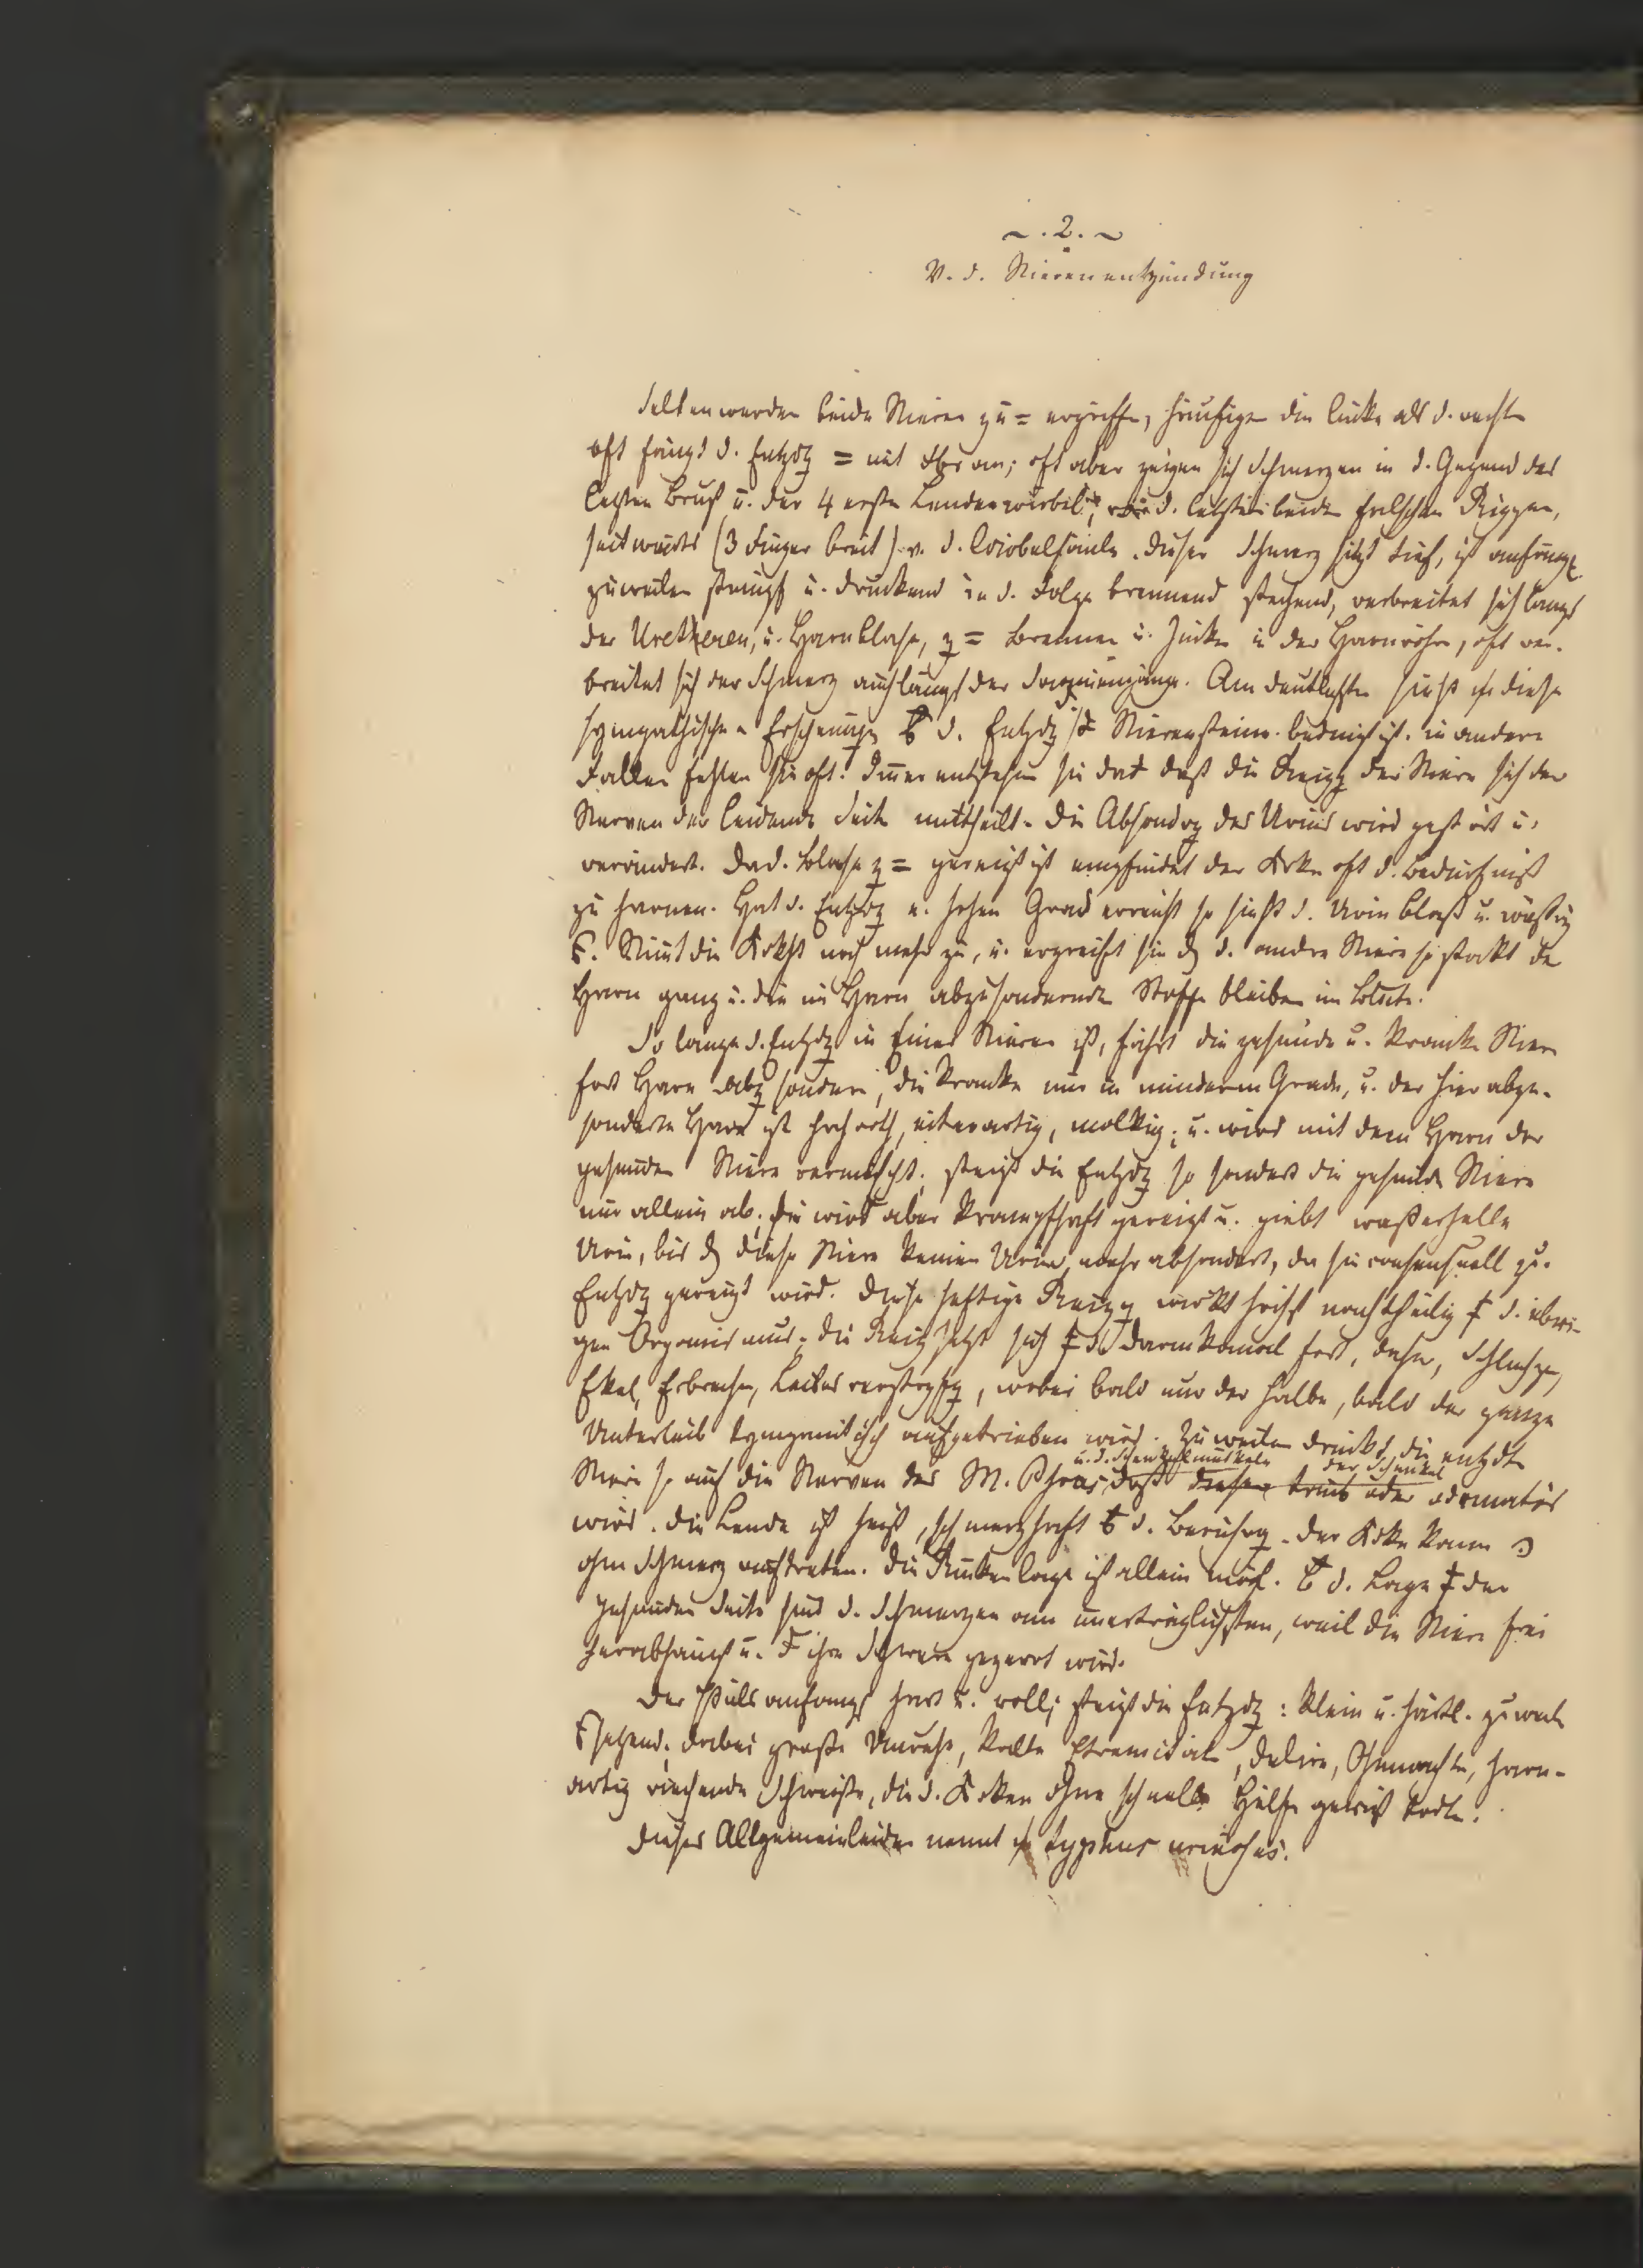 ~ . 2 . ~
V. d. Nierenentzündung
Selten werden beide Nieren zu = ergriffen, häufiger die linke als d. rechte
oft fängt d. Entzdg = mit an; oft aber zeigen sich Schmerzen in d. Gegend des
letzten Brust u. der 4 ersten Lendenwirbel, d. letzten beiden falschen Rippen,
seitwärts (3 Finger breit) v. d. Wirbelsäule. Dieser Schmerz sitzt tief, ist anfangs
zuweilen stumpf u. drückend in d. Folge brennend stechend, verbreitet sich längs
der Uretheren, u. Harnblase, z = Brennen u. Jucken in der Harnröhre, oft ver-
breitet sich der Schmerz auch längs der Am deutlichsten sieht diese
sympathischen Erscheinungen d. Entzdg Nierensteine bedingt ist. in andern
Fällen fehlen sie oft. Immer entstehen sie daß die Reizg der Niere sich den
Nerven der leidenden Seite mittheilt. Die Absondrg des Urins wird gestört u.
verändert. Da d. Blase z = gereizt ist empfindet der Krke oft d. Bedürfniß
zu harnen. Hat d. Entzdg e. hohen Grad erreicht so sieht d. Urin blaß u. wäßrig
Nimt die Krkht noch mehr zu, u. ergreift sie d. andre Niere so stockt der
Harn ganz u. die im Harn abzusondernden Stoffe bleiben im Blute.
So lange d. Entzdg in Einer Niere ist, fährt die gesunde u. kranke Niere
fort Harn abzsondern, die kranke nur in minderem Grade, u. der hier abge-
sonderte Harn ist hochroth, eiterartig, molkig; u. wird mit dem Harn der
gesunden Niere vermischt; steigt die Entzdg so sondert die gesunde Niere
nur allein ab; sie wird aber krampfhaft gereizt u. giebt wasserhellen
Urin, bis diese Niere keinen Urin mehr absondert, da sie consensuell zu.
Entzdg gereizt wird. Diese heftige Reizg wirkt höchst nachtheilig d. übri-
gen Organismus; die Reiz setzt sich d. Darmkanal fort, daher, Schluchzen,
Ekel, Erbrechen, Leibesverstopfg, wobei bald nur der halbe, bald der ganze
Unterleib tympanitisch aufgetrieben wird. Zuweilen drückt die entzdte
u. d. Schenkelmuskeln der Schenkel
Niere so auf die Nerven des M. Psoas daß dieser taub oder ödematös
wird. Die Lende ist heiß, schmerzhaft d. Berührg. Der Krke kann
ohne Schmerz auftreten. Die Rückenlage ist allein mögl. d. Lage der
gesunden Seite sind d. Schmerzen am unerträglichsten, weil die Niere frei
herabhängt u. ihre Schwere gezerrt wird.
Der Puls anfangs hart u. voll; steigt die Entzdg: klein u. härtl. zuweilen
setzend; dabei große Unruhe, kalte Extremitäten, Delirien, Ohnmachten, harn-
artig riechende Schweiße, die d. Krken ohne schnelle Hülfe gewiß tödten.
Dieses Allgemeinleiden nennt typhus urinosus.